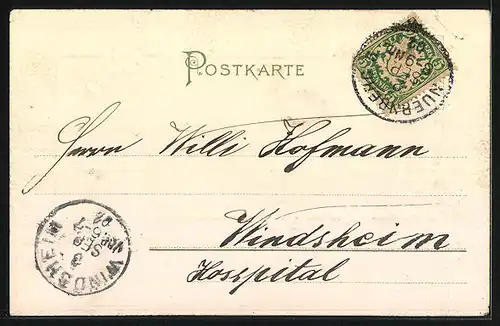 POSTKARTE
NUERNBERG
Herrn Willi Hofmann
Windsheim
Hosspital
WINDSHEIM
SEP